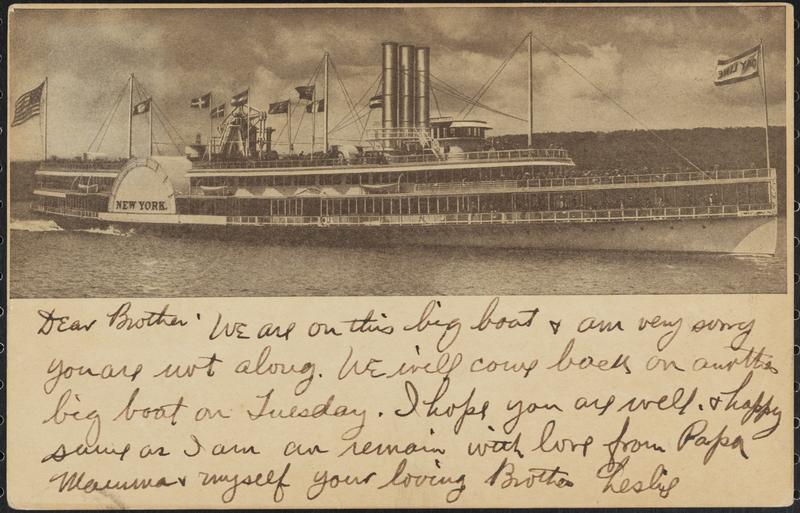 DAY LINE
NEW YORK.
Dear Brother We are on this big boat & am very sorry
you are not along. We will come back on another
big boat on Tuesday. I hope you are well. & happy
same as I am an remain with love from Papa
Mamma & myself your loving Brother Leslie